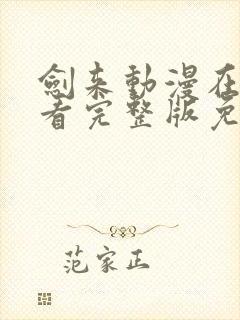 劍来動漫在
看完整版免
范家正